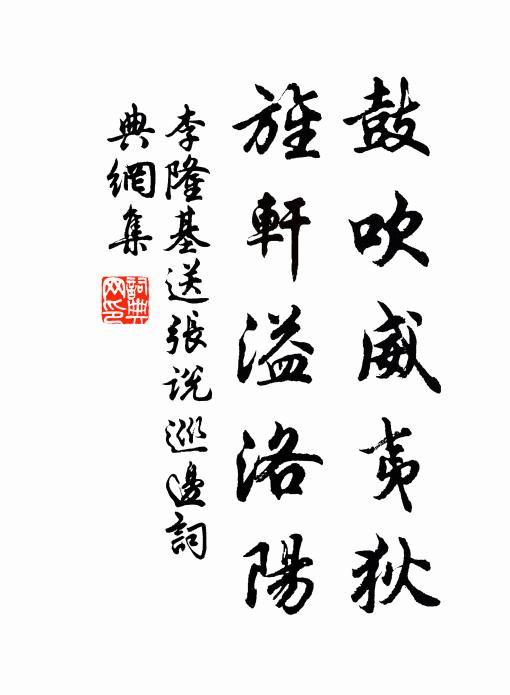 鼓吹威夷狄
旌軒溢洛陽
李隆基送張說巡邊詞
典網集
詞典
网印